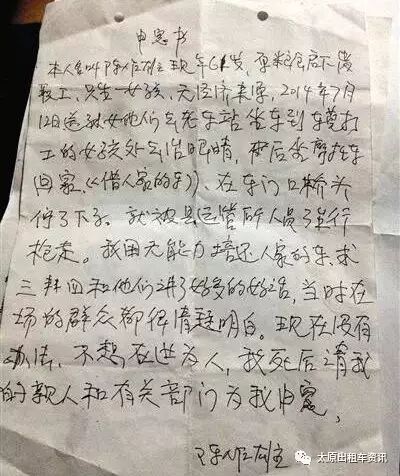 申冤书
本人名叫陈佐雄 现年61岁，原粮食局下岗
职工，只生一女孩，无经济来源，2014年7月
12日送女他们去客车站坐车到樟打
工的女孩处去治眼睛，而后坐摩托车
回家《(借人家的车)》、在车门口桥头
停了下子。就被县运管所人员强行
抢走。我因无能力培还人家的车，求
三拜四和他们讲了好多的好话，当时在
场的群众都很清楚明白。现在没有
办法，不想在世为人，我死后请我
的亲人和有关部门为我申冤，
陈佐雄
太原出租车资讯